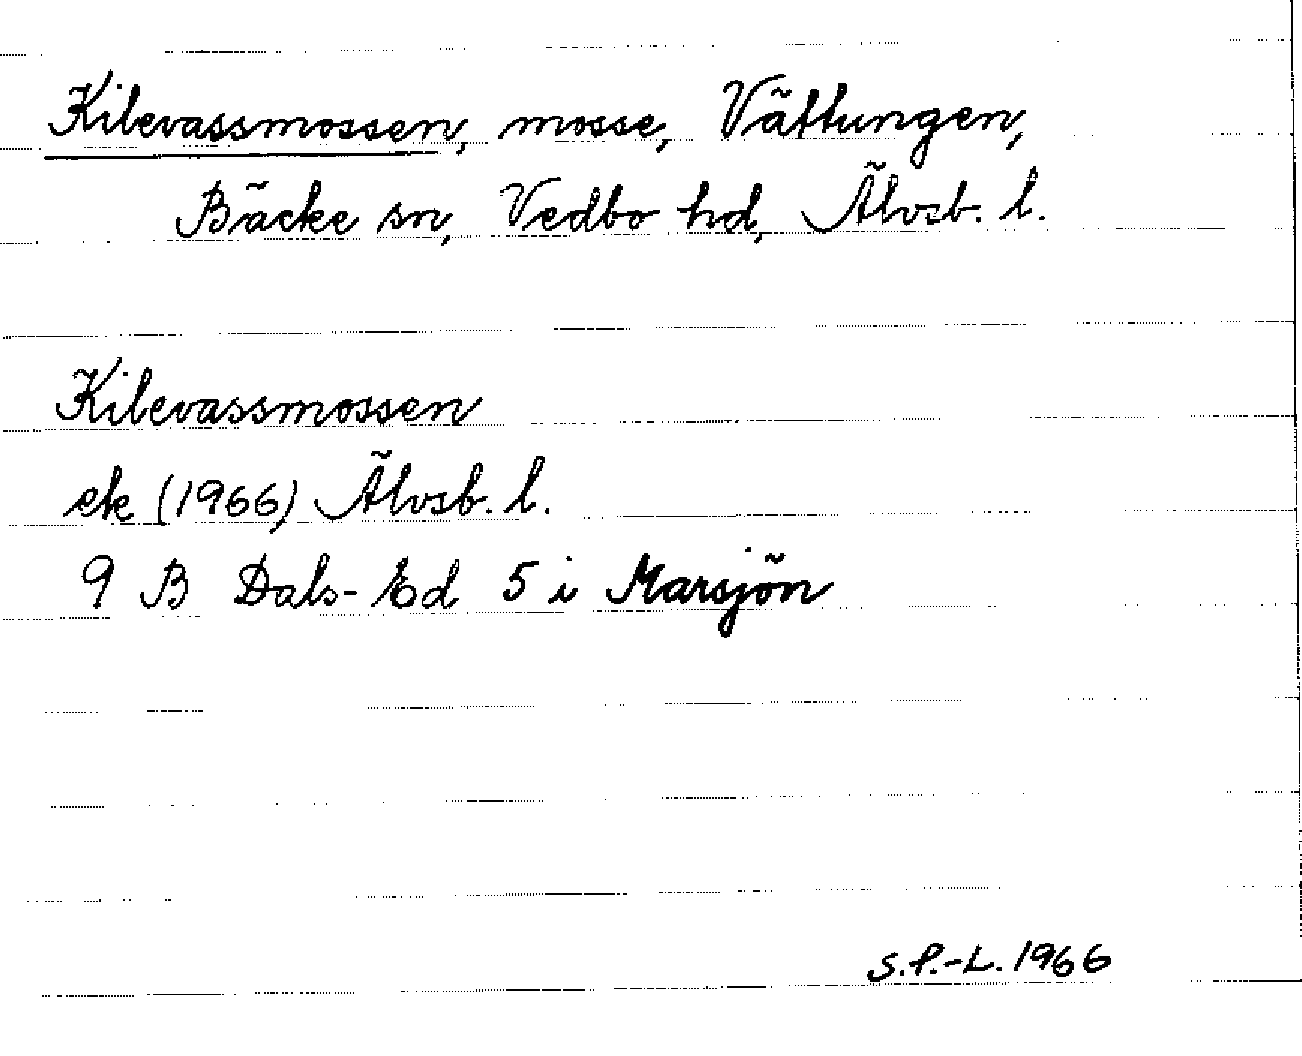 Kilevassmossen, mosse, Vättungen,
Bäcke sn, Vedbo hd, Älvsb. l.
Kilevassmossen
ek (1966) Älvsb. l.
9 B Dals-Ed 5 i Marsjön
S.P.-L. 1966